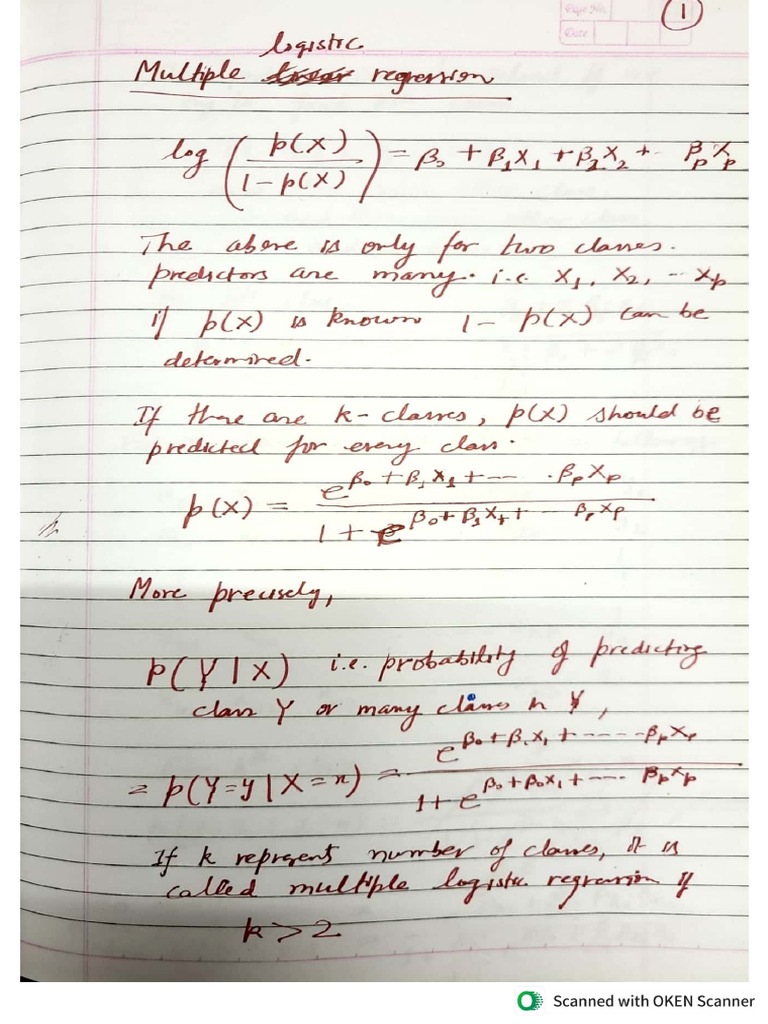 Page No.
Date
1
logistic
Multiple linear regression
log ( p(X) / 1 - p(X) ) = β₀ + β₁X₁ + β₂X₂ + - βₚXₚ
The above is only for two classes.
predictors are many. i.e. X₁, X₂, -- Xₚ
if p(X) is known 1 - p(X) can be
determined.
If there are k-classes, p(X) should be
predicted for every class.
p(X) = e^(β₀ + β₁X₁ + --- . βₚXₚ) / 1 + e^(β₀ + β₁X₁ + -- βₚXₚ)
More precisely,
p(Y|X) i.e. probability of predicting
class Y or many classes in Y,
= p(Y=y|X=x) = e^(β₀ + β₁X₁ + ----- βₚXₚ) / 1 + e^(β₀ + β₀X₁ + ---- βₚXₚ)
If k represent number of classes, it is
called multiple logistic regression if
k > 2
Scanned with OKEN Scanner